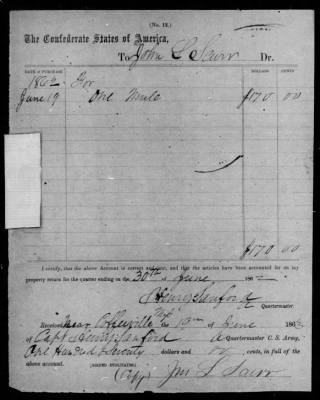 (No. 12.)
The Confederate States of America,
To John L Saur Dr.
DATE OF PURCHASE. DOLLARS CENTS
1862 For
June 19 One Mule $170 00
$170 00
I certify, that the above Account is correct and just, and that the articles have been accounted for on my
property return for the quarter ending on the 30th of June 1862
Henry Sanford
Quartermaster.
Received Near Coffeeville the 19th of June 1862
of Capt Henry Sanford a Quartermaster C. S. Army,
One Hundred & Seventy dollars and 00 cents, in full of the
above account. (SIGNED DUPLICATES.)
(Copy) Jno L Saur